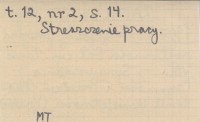 t. 12, nr 2, s. 14.
Streszczenie pracy.
MT